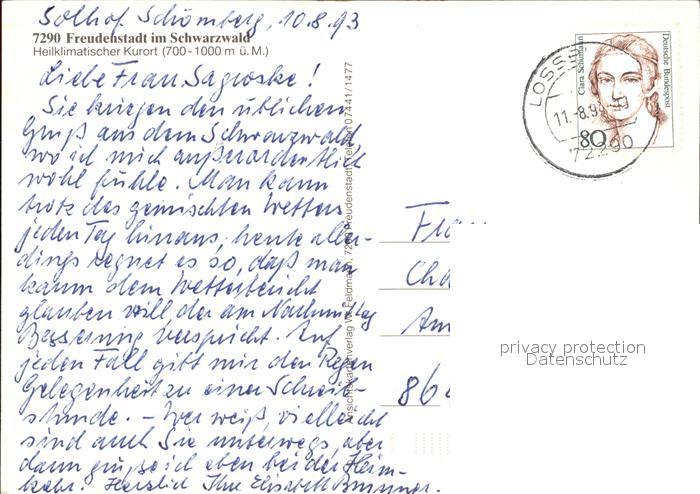 Solhof Schömberg, 10.8.93
7290 Freudenstadt im Schwarzwald
Heilklimatischer Kurort (700-1000 m ü.M.)
Liebe Frau Sagroske!
Sie kriegen den üblichen
Gruß aus dem Schwarzwald
wo ich mich außerordentlich
wohl fühle. Man kann
trotz des gemischten Wetters
jeden Tag hinaus, heute aller-
dings regnet es so, daß man
kaum dem Wetterbericht
glauben will der am Nachmittag
Besserung verspricht. Auf
jeden Fall gibt mir der Regen
Gelegenheit zu einer Schreib-
stunde. – Wer weiß, vielleicht
sind auch Sie unterwegs, aber
dann gu, so ich eben bei der Heim-
kehr. Herzlich Ihre Elisabeth Brunner.
Ansichtskartenverlag W. Feldmann, 7290 Freudenstadt, Telefon 07441/1477
Clara Schumann
Deutsche Bundespost
80
LOSSB
11.-8.93
72290
Fra
Cha
Am
86
privacy protection
Datenschutz